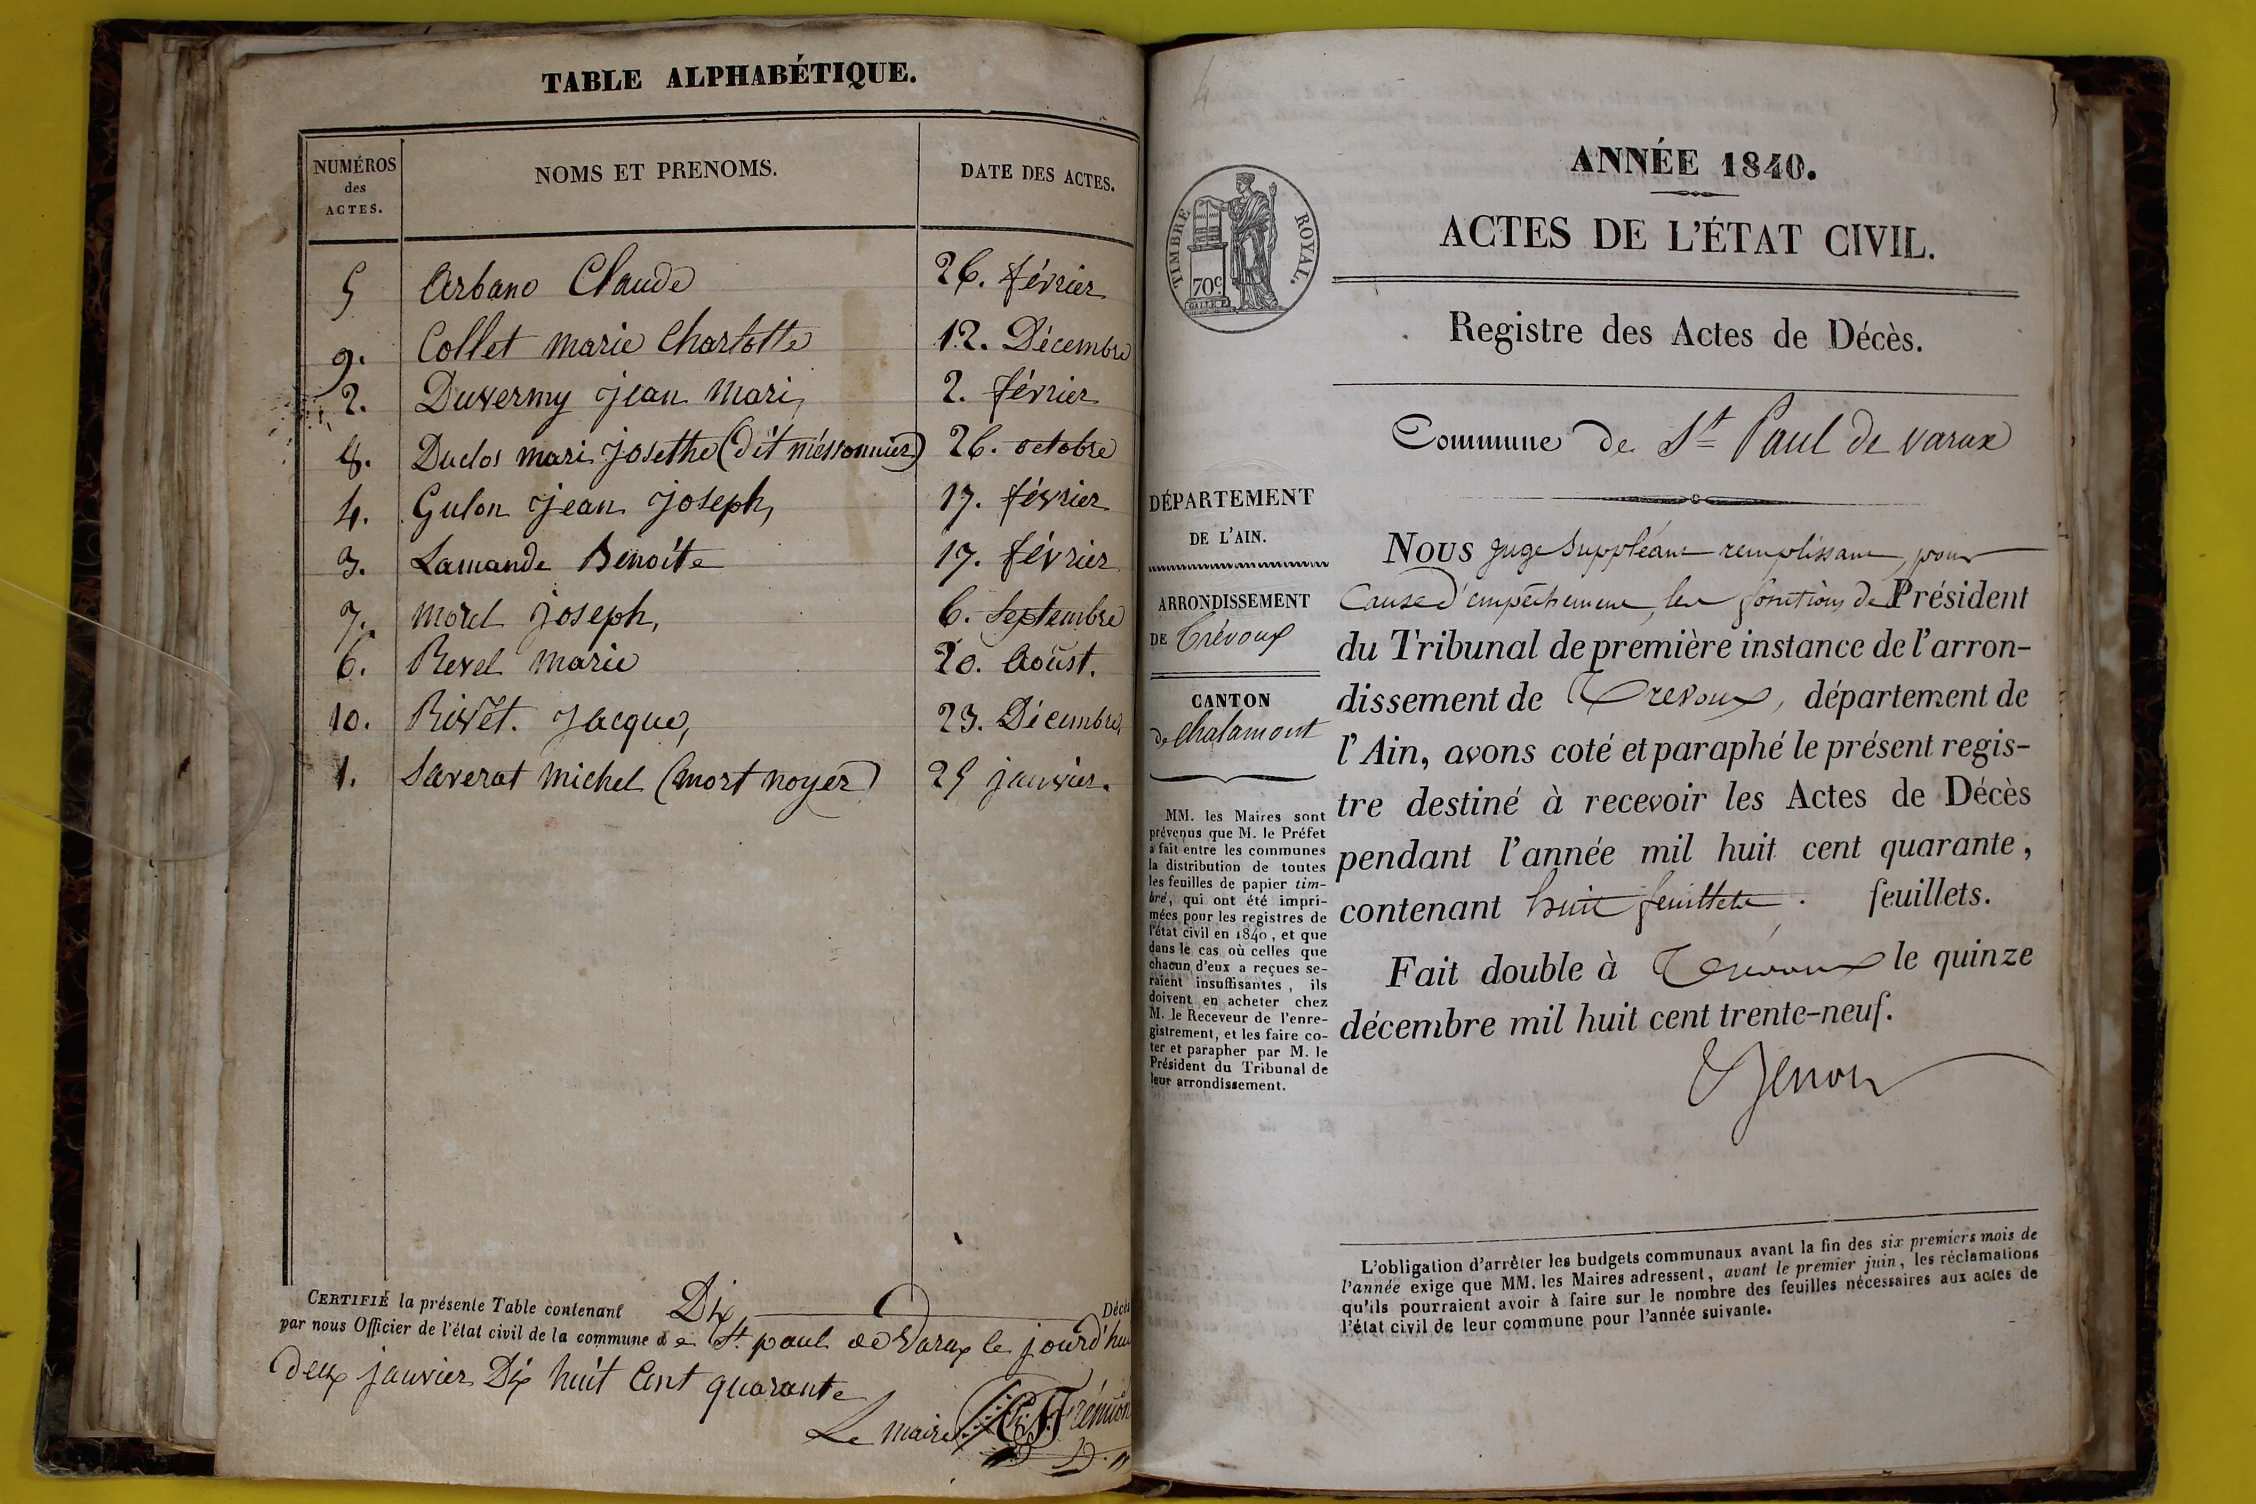 TABLE ALPHABÉTIQUE.
NUMÉROS des ACTES. NOMS ET PRENOMS. DATE DES ACTES.
5 Arbano Claude 26. février
9. Collet marie Charlotte 12. Décembre
2. Duvermy jean mari, 2. février
8. Duclos mari josethe (dit méssonnier) 26. octobre
4. Gulon jean joseph, 17. février
3. Lamande Benoite 17. février
7. morel joseph, 6. Septembre
6. Revel marie 20. Aoûst.
10. Rivet. jacque, 23. Décembre,
1. Saverat michel (mort noyer) 25 janvier.
CERTIFIÉ la présente Table contenant Dix Décès
par nous Officier de l'état civil de la commune de St. paul de Varax le jourd'hui
deux janvier Dix huit cent quarante
Le maire Frémion
ANNÉE 1840.
ACTES DE L'ÉTAT CIVIL.
TIMBRE ROYAL.
70c.
Registre des Actes de Décès.
Commune de St Paul de varax
DÉPARTEMENT
DE L'AIN.
ARRONDISSEMENT
DE Trévoux
CANTON
de Chalamont
MM. les Maires sont
prévenus que M. le Préfet
a fait entre les communes
la distribution de toutes
les feuilles de papier tim-
bré, qui ont été impri-
mées pour les registres de
l'état civil en 1840, et que
dans le cas où celles que
chacun d'eux a reçues se-
raient insuffisantes, ils
doivent en acheter chez
M. le Receveur de l'enre-
gistrement, et les faire co-
ter et parapher par M. le
Président du Tribunal de
leur arrondissement.
NOUS juge Suppléant remplissant, pour
Cause d'empêchement, les fonctions de Président
du Tribunal de première instance de l'arron-
dissement de Trevoux, département de
l'Ain, avons coté et paraphé le présent regis-
tre destiné à recevoir les Actes de Décès
pendant l'année mil huit cent quarante,
contenant huit feuillets. feuillets.
Fait double à Trévoux le quinze
décembre mil huit cent trente-neuf.
L'obligation d'arrêter les budgets communaux avant la fin des six premiers mois de
l'année exige que MM. les Maires adressent, avant le premier juin, les réclamations
qu'ils pourraient avoir à faire sur le nombre des feuilles nécessaires aux actes de
l'état civil de leur commune pour l'année suivante.